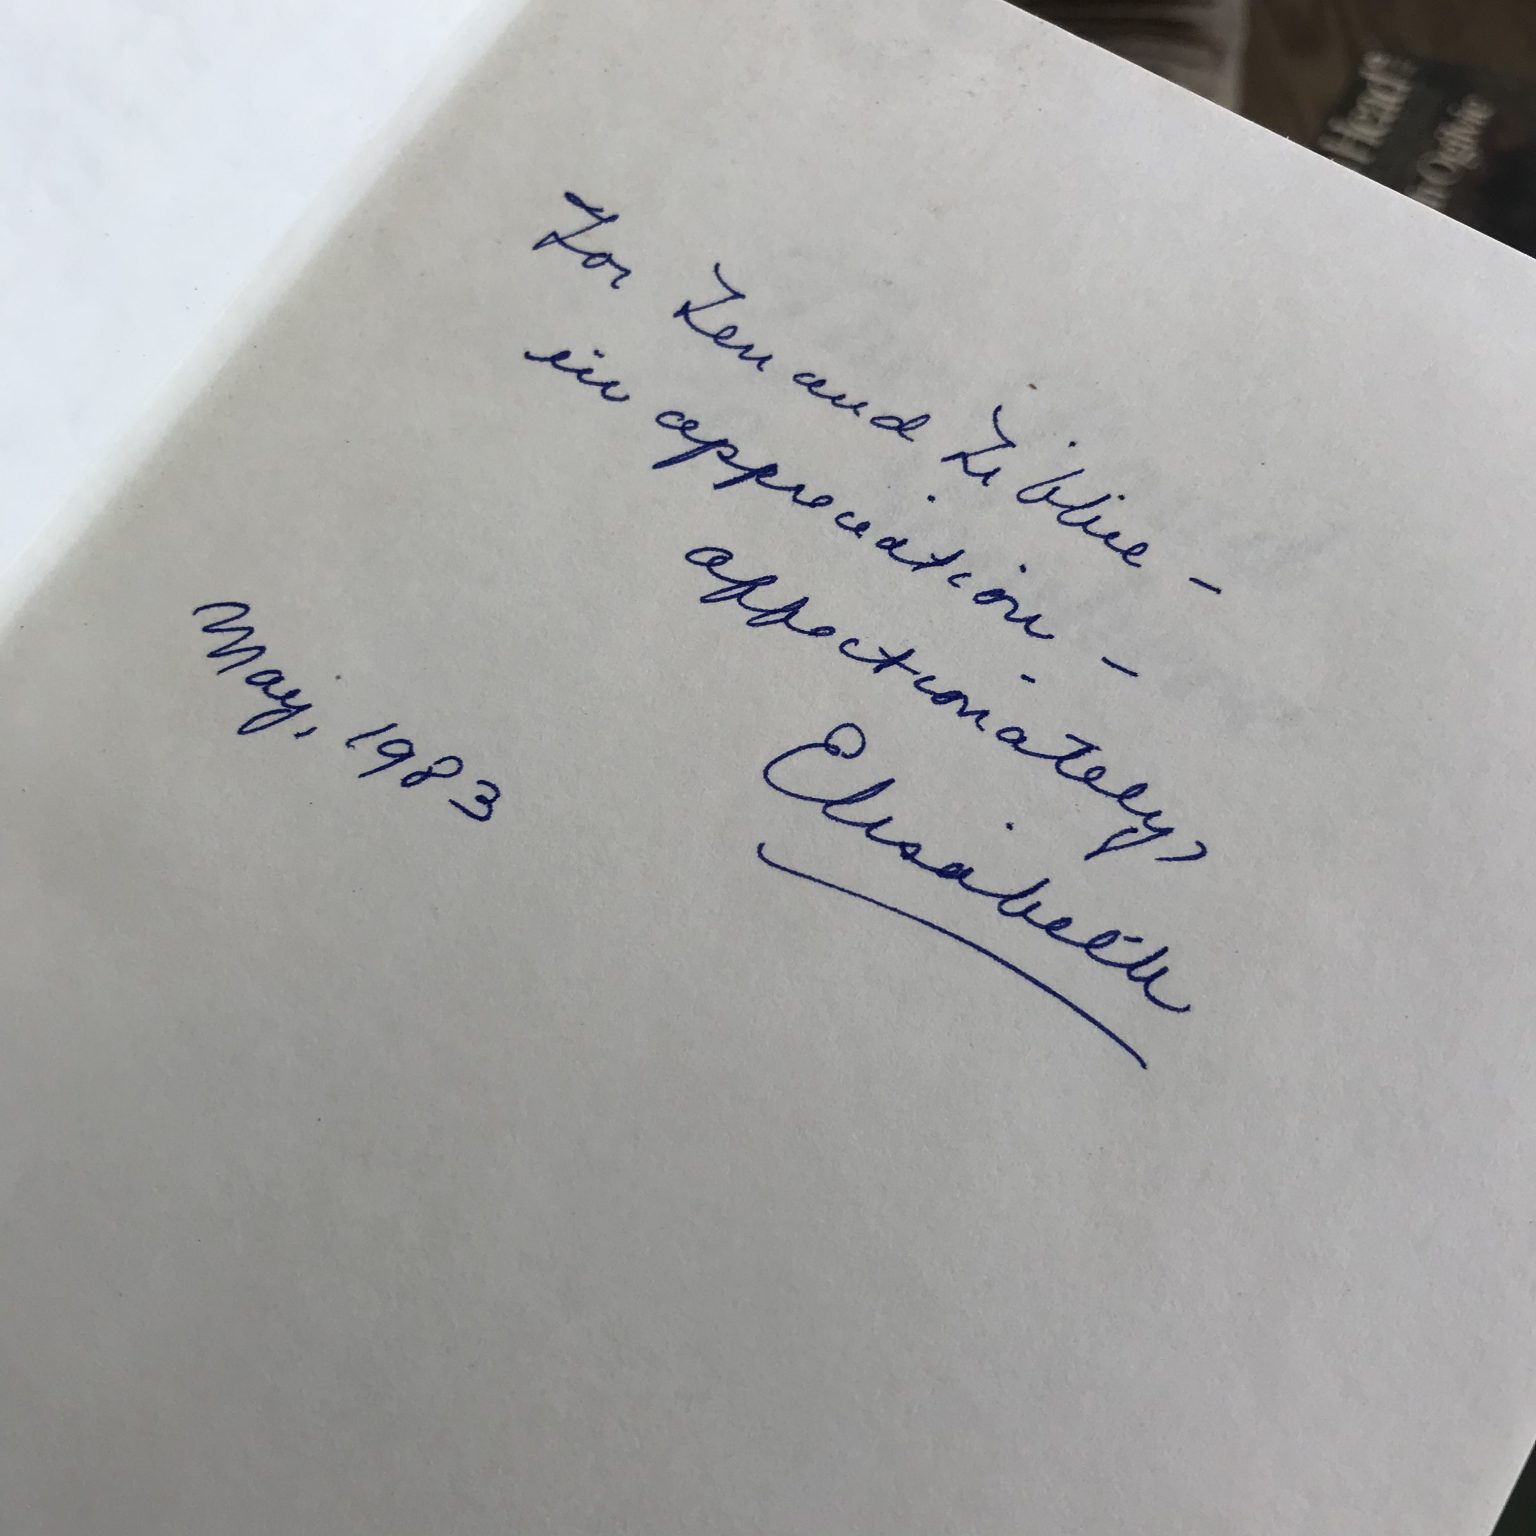 For Len and Libbie -
in appreciation -
affectionately,
Elisabeth
May, 1983
Head
Ogilvie